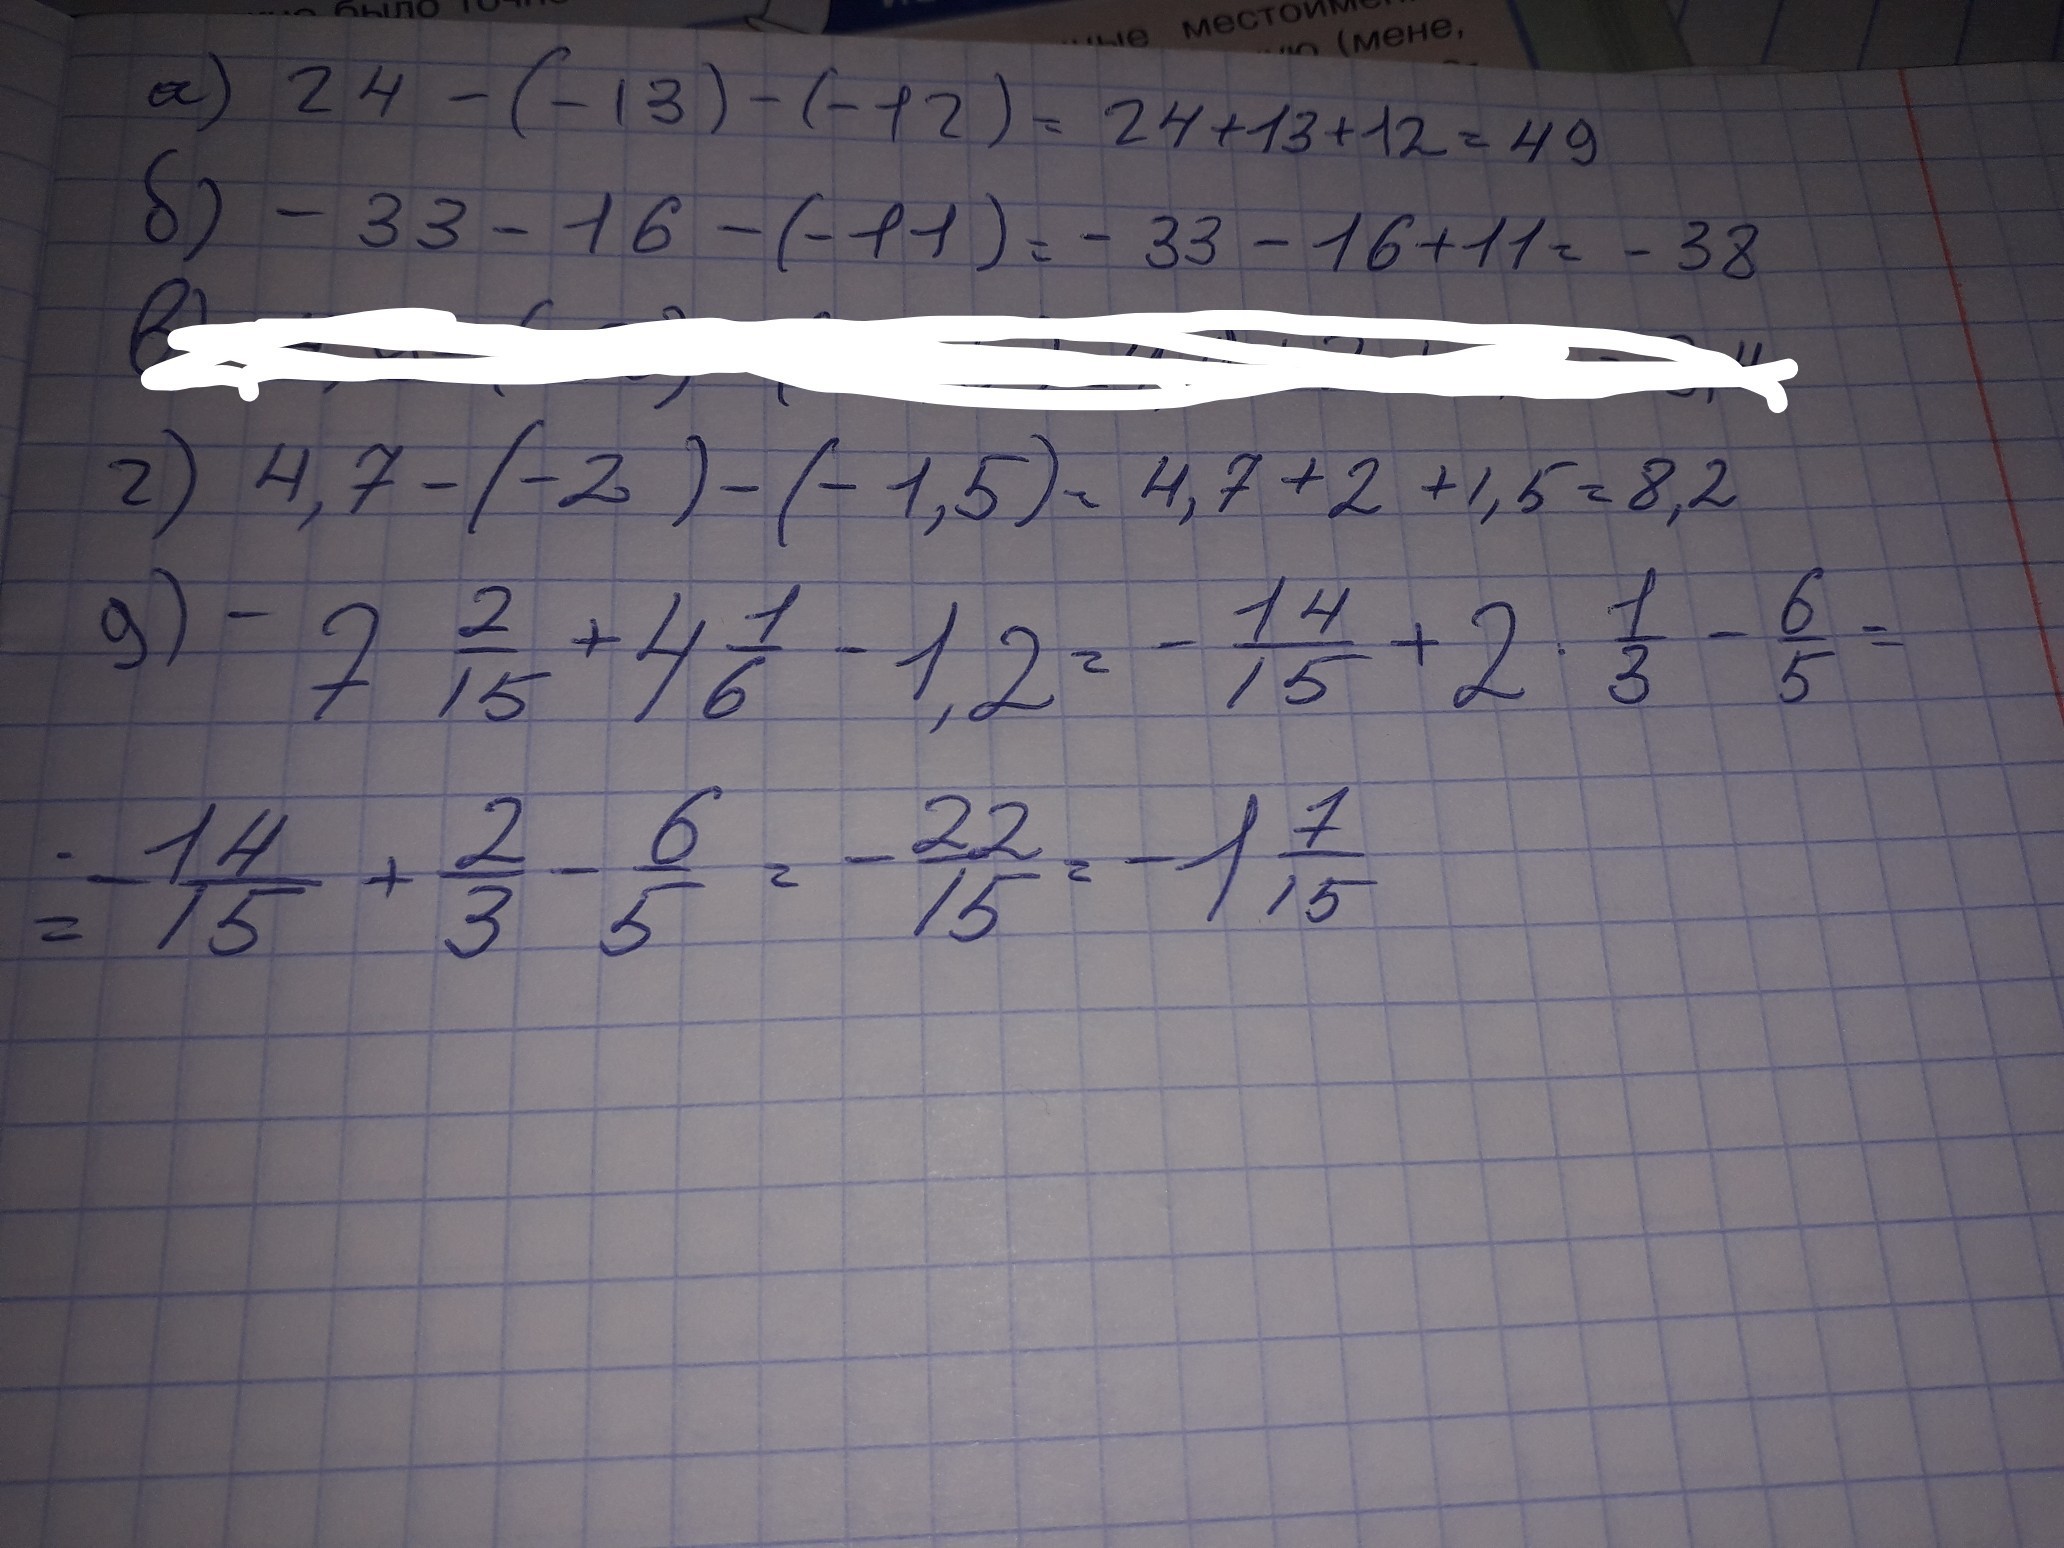 было точно
ные местоиме
ую (мене,
а) 24 - (-13) - (-12) = 24+13+12 = 49
б) - 33 - 16 - (-11) = - 33 - 16 + 11 = - 38
в)
г) 4,7 - (-2) - (-1,5) = 4,7 + 2 + 1,5 = 8,2
д) - 7 2/15 + 4 1/6 - 1,2 = - 14/15 + 2 · 1/3 - 6/5 =
= - 14/15 + 2/3 - 6/5 = - 22/15 = - 1 7/15